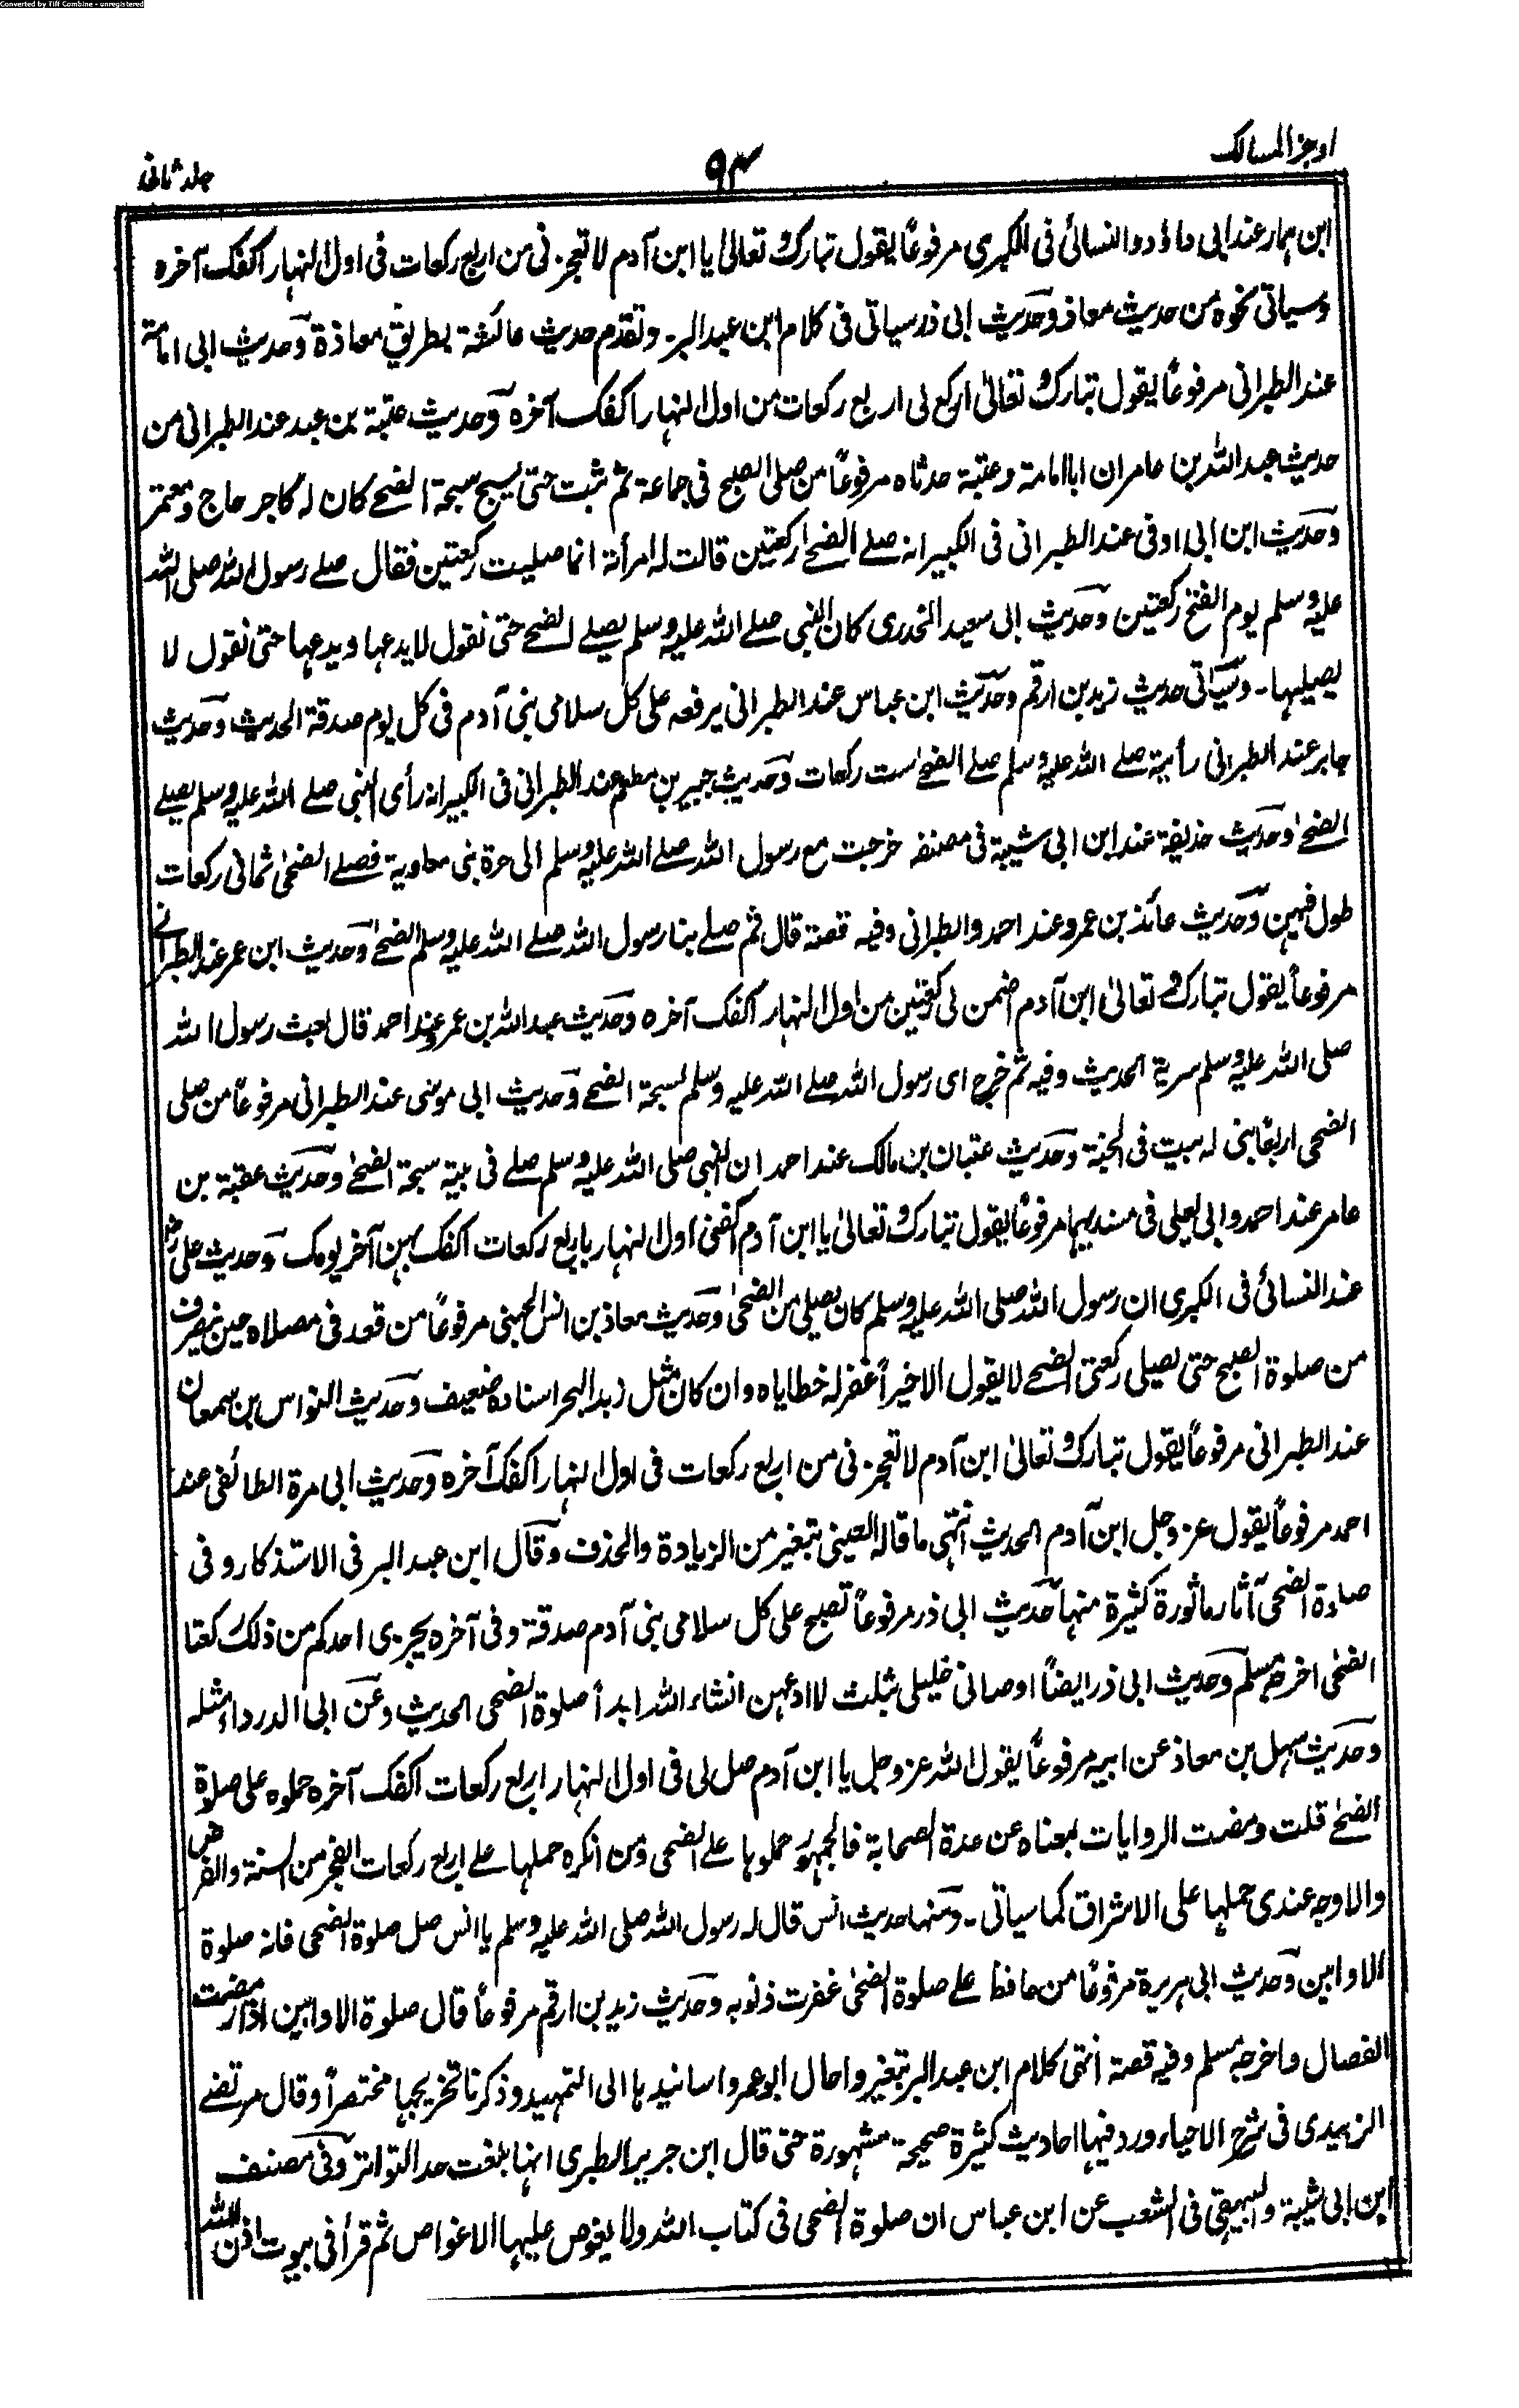 Converted by Tiff Combine - unregistered
اوجز المسالک
۹۴
جلد ثانی
ابن ہمار عند ابی داؤد والنسائی فی الکبری مرفوعاً یقول تبارک وتعالیٰ یا ابن آدم لا تعجزنی من اربع رکعات فی اول النہار اکفک آخرہ
وسیاتی نحوہ من حدیث معاذ وحدیث ابی ذر سیاتی فی کلام ابن عبد البر۔ وتقدم حدیث عائشۃ بطریق معاذۃ وحدیث ابی امامۃ
عند الطبرانی مرفوعاً یقول تبارک وتعالیٰ ارکع لی اربع رکعات من اول النہار اکفک آخرہ وحدیث عتبۃ بن عبد عند الطبرانی من
حدیث عبد اللہ بن عامر ان ابا امامۃ وعتبۃ حدثاہ مرفوعاً من صلی الصبح فی جماعۃ ثم ثبت حتی یسبح سبحۃ الضحے کان لہ کاجر حاج ومعتمر
وحدیث ابن ابی اوفی عند الطبرانی فی الکبیر انہ صلے الضحے رکعتین قالت لہ امرأۃ انما صلیت رکعتین فقال صلے رسول اللہ صلی اللہ
علیہ وسلم یوم الفتح رکعتین وحدیث ابی سعید الخدری کان النبی صلے اللہ علیہ وسلم یصلے الضحے حتی نقول لا یدعہا ویدعہا حتی نقول لا
یصلیہا۔ وسیاتی حدیث زید بن ارقم وحدیث ابن عباس عند الطبرانی یرفعہ علی کل سلامی بنی آدم فی کل یوم صدقۃ الحدیث وحدیث
جابر عند الطبرانی رأیتہ صلے اللہ علیہ وسلم صلے الضحےٰ ست رکعات وحدیث جبیر بن مطعم عند الطبرانی فی الکبیر انہ رأی النبی صلے اللہ علیہ وسلم یصلے
الضحےٰ وحدیث حذیفۃ عند ابن ابی شیبۃ فی مصنفہ خرجت مع رسول اللہ صلے اللہ علیہ وسلم الی حرۃ بنی معاویۃ فصلے الضحیٰ ثمانی رکعات
طول فیہن وحدیث عائذ بن عمرو عند احمد والطبرانی وفیہ قصۃ قال ثم صلے بنا رسول اللہ صلے اللہ علیہ وسلم الضحےٰ وحدیث ابن عمر عند الطبرانے
مرفوعاً یقول تبارک وتعالیٰ ابن آدم اضمن لی رکعتین من اول النہار اکفک آخرہ وحدیث عبد اللہ بن عمرو عند احمد قال بعث رسول اللہ
صلی اللہ علیہ وسلم سریۃ الحدیث وفیہ ثم خرج ای رسول اللہ صلے اللہ علیہ وسلم لسبحۃ الضحے وحدیث ابی موسٰی عند الطبرانی مرفوعاً من صلی
الضحی اربعاً بنی لہ بیت فی الجنۃ وحدیث عتبان بن مالک عند احمد ان النبی صلی اللہ علیہ وسلم صلے فی بیتہ سبحۃ الضحےٰ وحدیث عقبۃ بن
عامر عند احمد وابی یعلی فی مسندیہما مرفوعاً یقول تبارک وتعالیٰ یا ابن آدم اکفنی اول النہار باربع رکعات اکفک بہن آخر یومک وحدیث علیؓ
عند النسائی فی الکبری ان رسول اللہ صلی اللہ علیہ وسلم کان یصلی من الضحیٰ وحدیث معاذ بن انس الجہنی مرفوعاً من قعد فی مصلاہ حین ینصرف
من صلوۃ الصبح حتی یصلی رکعتی الضحے لا یقول الا خیراً غفر لہ خطایاہ وان کان مثل زبد البحر اسنادہ ضعیف وحدیث النواس بن سمعان
عند الطبرانی مرفوعاً یقول تبارک وتعالیٰ ابن آدم لا تعجزنی من اربع رکعات فی اول النہار اکفک آخرہ وحدیث ابی مرۃ الطائفی عند
احمد مرفوعاً یقول عز وجل ابن آدم الحدیث انتہی ما قالہ العینی بتغیر من الزیادۃ والحذف وقال ابن عبد البر فی الاستذکار وفی
صلوۃ الضحی آثار ماثورۃ کثیرۃ منہا حدیث ابی ذر مرفوعاً تصبح علی کل سلامی بنی آدم صدقۃ وفی آخرہ یجزی احدکم من ذلک رکعتا
الضحٰی اخرجہ مسلم وحدیث ابی ذر ایضاً اوصانی خلیلی بثلث لا ادعہن انشاء اللہ ابداً صلوۃ الضحی الحدیث وعن ابی الدرداء مثلہ
وحدیث سہل بن معاذ عن ابیہ مرفوعاً یقول اللہ عز وجل یا ابن آدم صل لی فی اول النہار اربع رکعات اکفک آخرہ حملوہ علی صلوۃ
الضحےٰ قلت ومضت الروایات بمعناہ عن عدۃ الصحابۃ فالجمہور حملوہا علے الضحی ومن انکرہ حملہا علے اربع رکعات الفجر من السنۃ والفرض
والاوجہ عندی حملہا علی الاشراق کما سیاتی۔ ومنہا حدیث انس قال لہ رسول اللہ صلی اللہ علیہ وسلم یا انس صل صلوۃ الضحی فانہ صلوۃ
الاوابین وحدیث ابی ہریرۃ مرفوعاً من حافظ علے صلوۃ الضحیٰ غفرت ذنوبہ وحدیث زید بن ارقم مرفوعاً قال صلوۃ الاوابین اذا رمضت
الفصال واخرجہ مسلم وفیہ قصۃ انتہی کلام ابن عبد البر بتغیر واحال ابو عمر واسانیدہا الی التمہید وذکرنا تخریجہا مختصراً وقال مرتضے
الزبیدی فی شرح الاحیاء ورد فیہا احادیث کثیرۃ صحیحۃ مشہورۃ حتی قال ابن جریر الطبری انہا بلغت حد التواتر وفی مصنف
ابن ابی شیبۃ والبیہقی فی الشعب عن ابن عباس ان صلوۃ الضحی فی کتاب اللہ ولا یغوص علیہا الا غواص ثم قرأ فی بیوت اذن اللہ